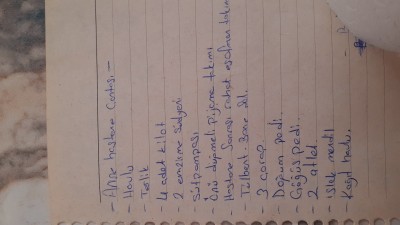 - Anne hastane Çantası. -
- Havlu
- Terlik
- 4 adet kilot
- 2 emzirme sütyeni
- Süt pompası
- Önü düğmeli pijama takımı
- Hastane Sonrası rahat eşofman takımı
- Tülbent.
- 3 çorap
- Doğum pedi.
- Göğüs pedi.
- 2 atlet
- Islak mendil
- Kağıt havlu.